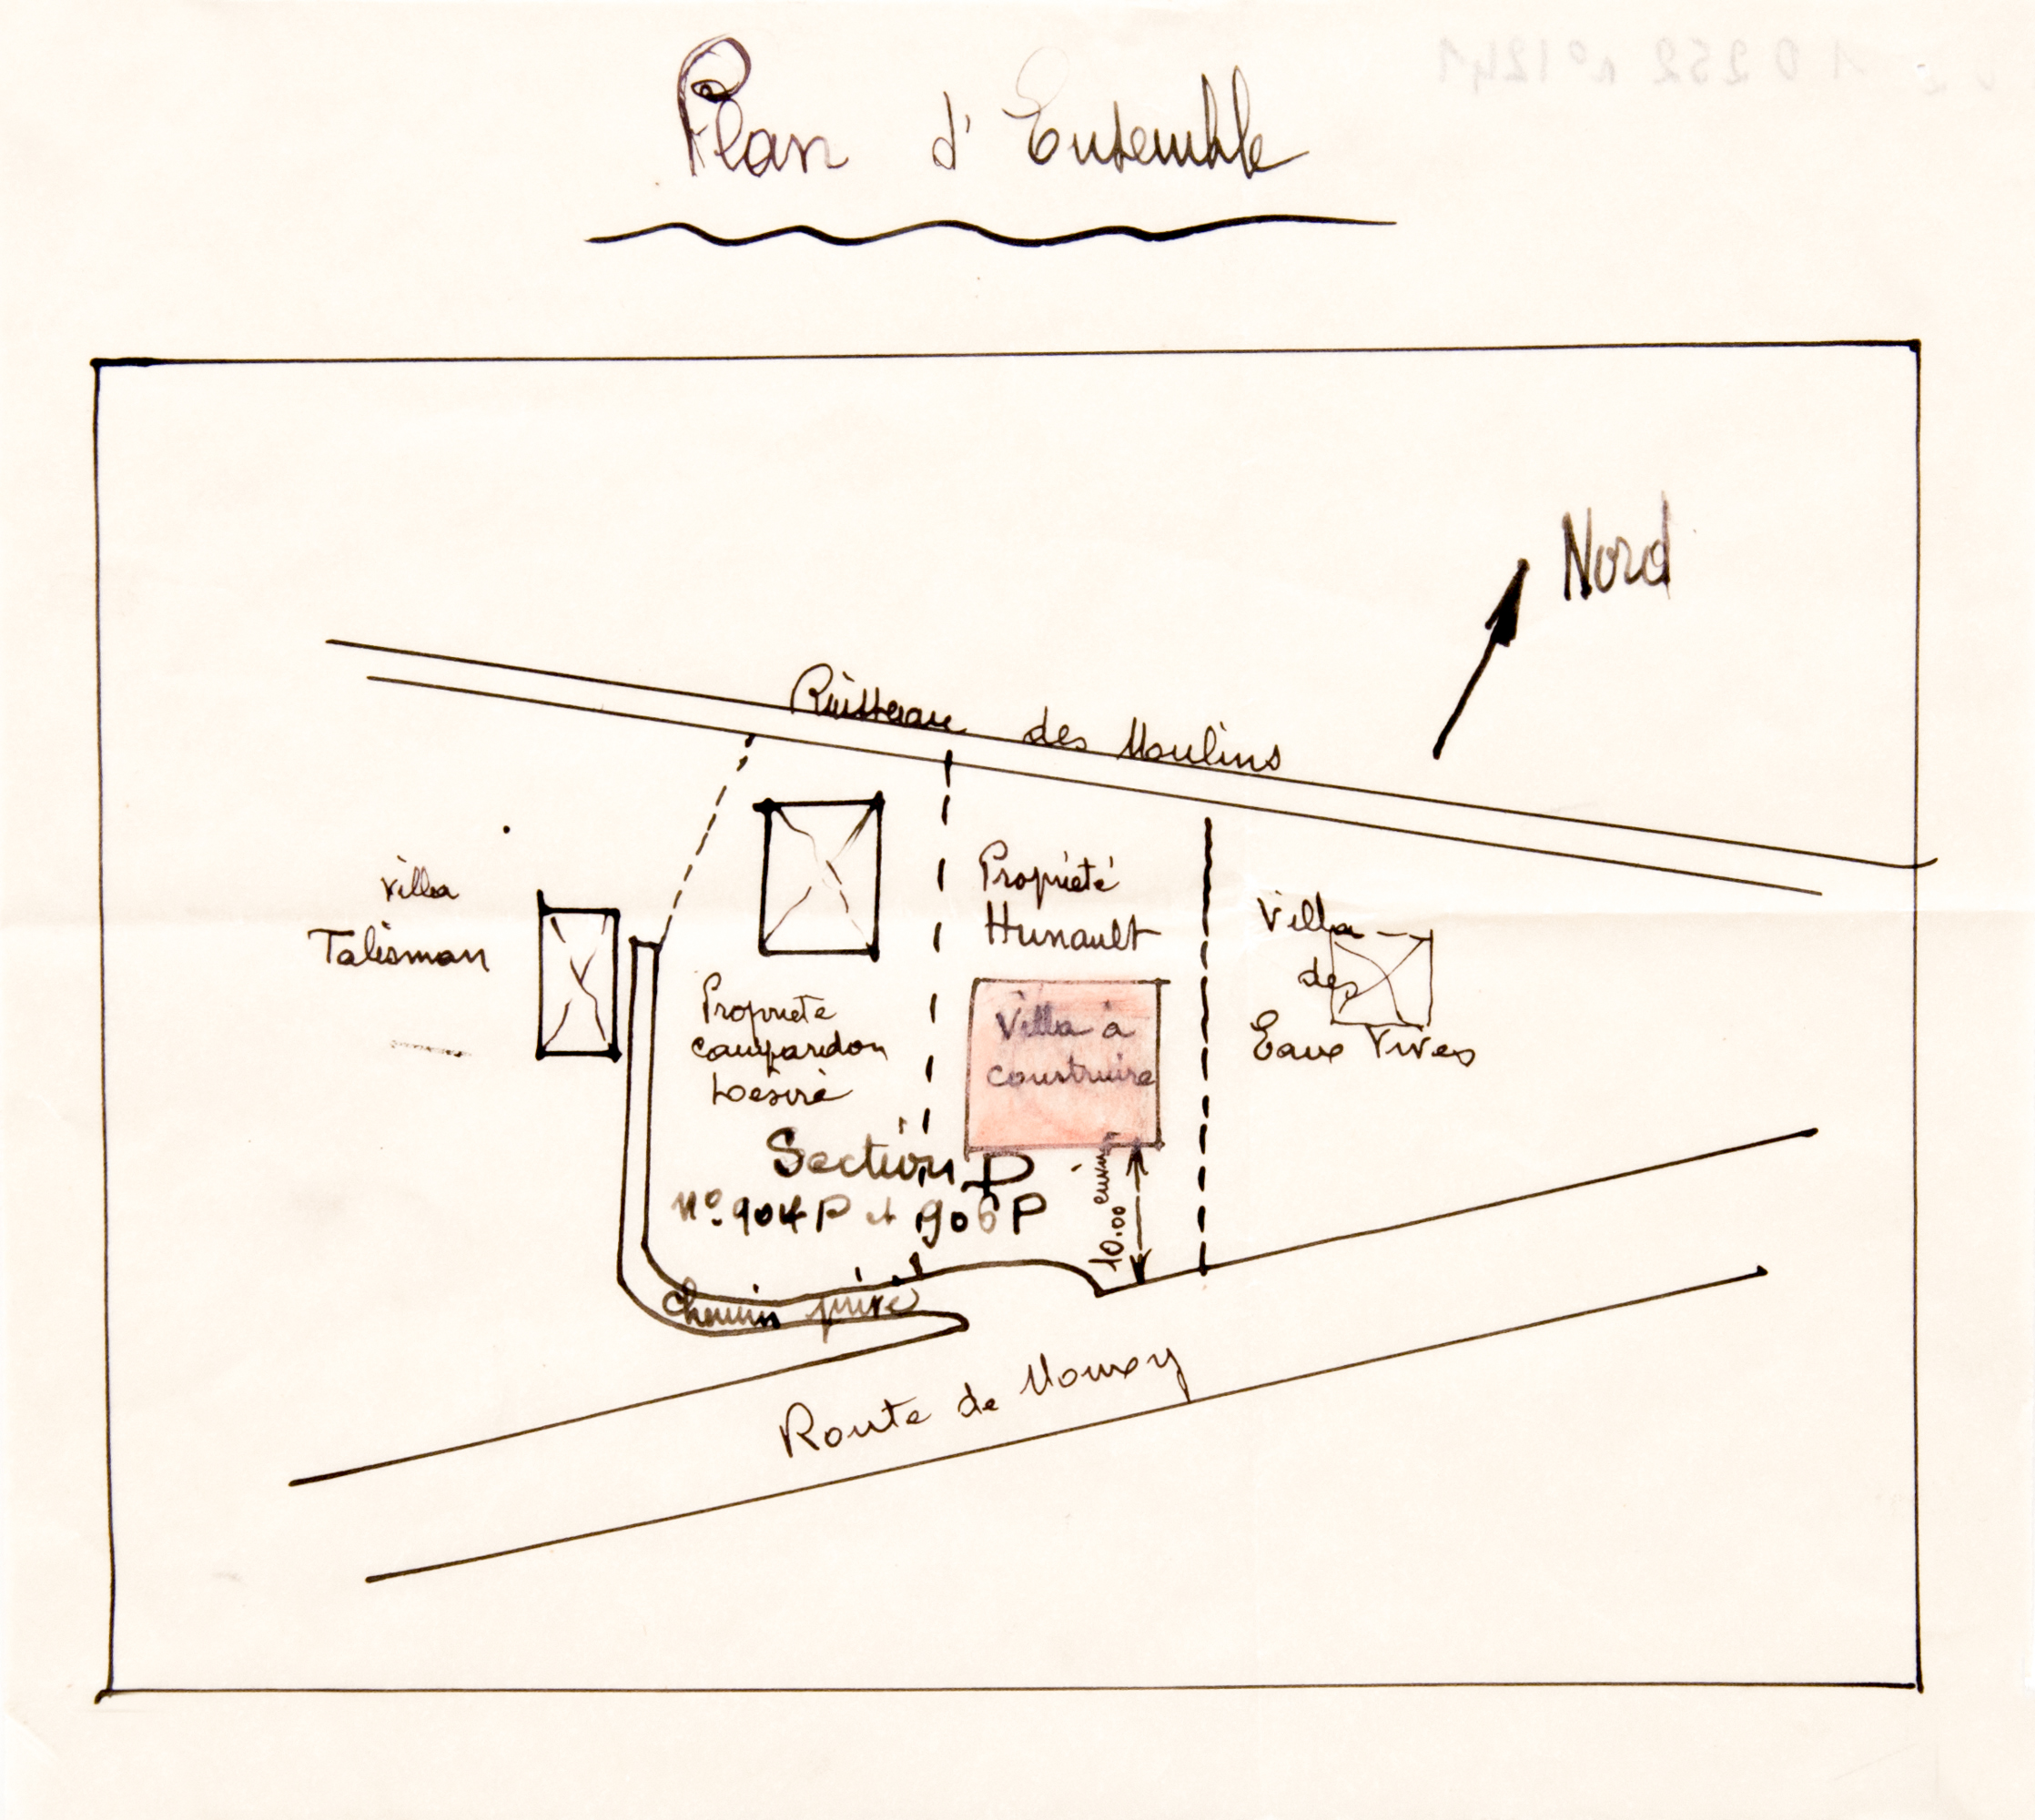 Plan d'Ensemble
Nord
Ruisseau des Moulins
Villa
Talisman
Propriété
Hunault
Villa
des
Eaux Vives
Propriete
campardon
Désiré
Villa à
construire
Section D
n° 904 P et 906 P
10.00
Chemin privé
Route de